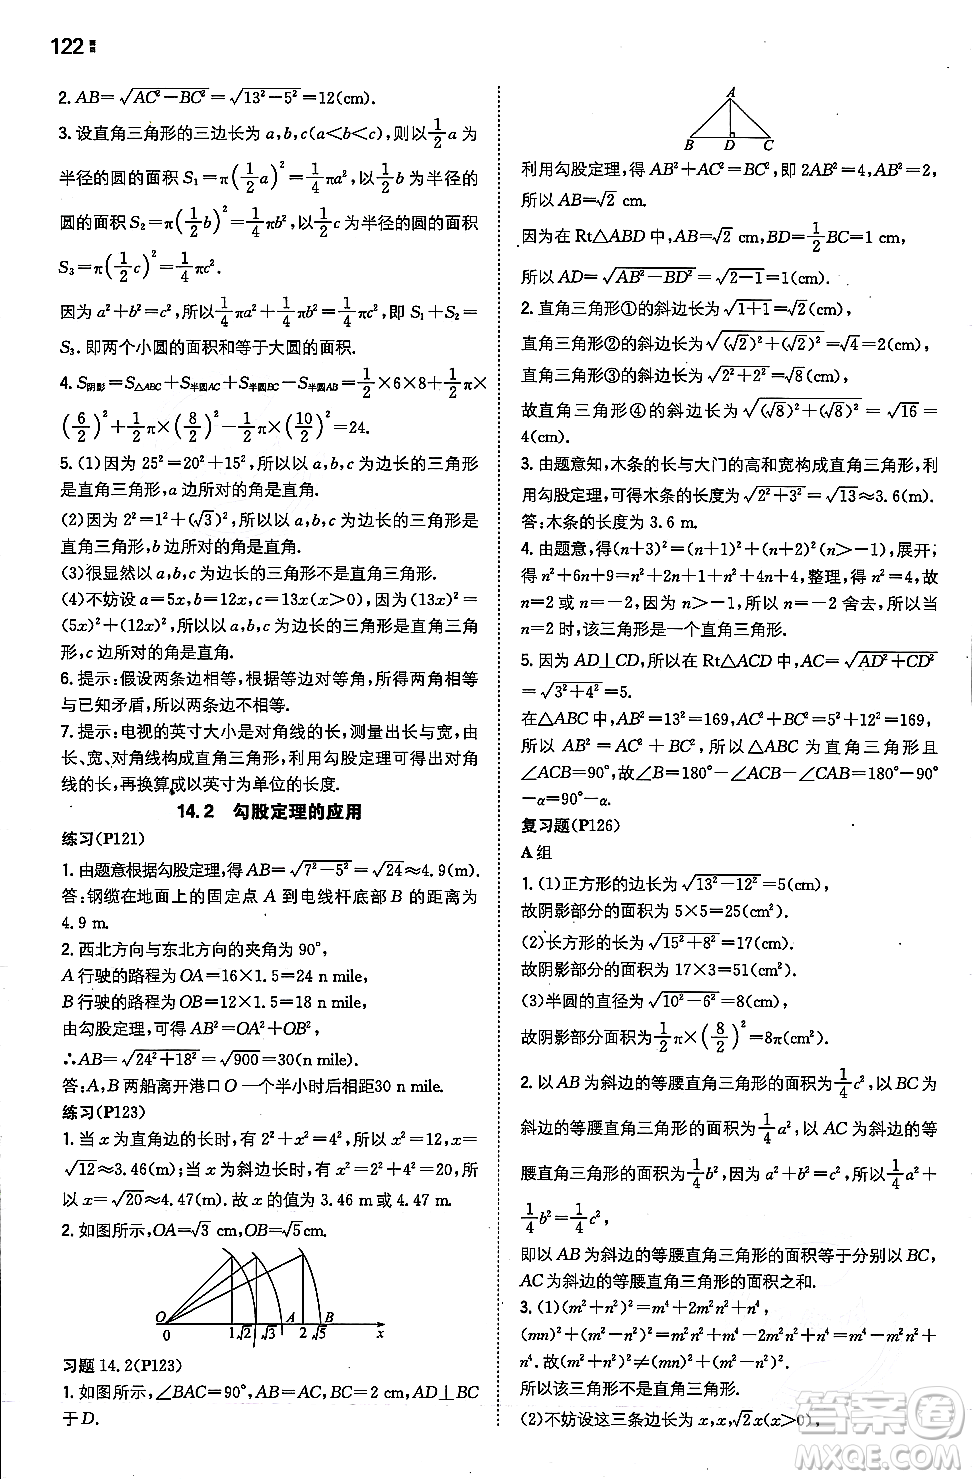 122
2. AB=√(AC²−BC²)=√(13²−5²)=12(cm).
3. 设直角三角形的三边长为 a,b,c(a<b<c),则以 1/2 a 为
半径的圆的面积 S₁=π(1/2 a)²=1/4 πa²,以 1/2 b 为半径的
圆的面积 S₂=π(1/2 b)²=1/4 πb²,以 1/2 c 为半径的圆的面积
S₃=π(1/2 c)²=1/4 πc².
因为 a²+b²=c²,所以 1/4 πa²+1/4 πb²=1/4 πc²,即 S₁+S₂=
S₃. 即两个小圆的面积和等于大圆的面积.
4. S阴影=S△ABC+S半圆AC+S半圆BC−S半圆AB=1/2×6×8+1/2π×
(6/2)²+1/2π×(8/2)²−1/2π×(10/2)²=24.
5. (1)因为 25²=20²+15²,所以以 a,b,c 为边长的三角形
是直角三角形,a 边所对的角是直角.
(2)因为 2²=1²+(√3)²,所以以 a,b,c 为边长的三角形是
直角三角形,b 边所对的角是直角.
(3)很显然以 a,b,c 为边长的三角形不是直角三角形.
(4)不妨设 a=5x,b=12x,c=13x(x>0),因为(13x)²=
(5x)²+(12x)²,所以以 a,b,c 为边长的三角形是直角三角
形,c 边所对的角是直角.
6. 提示:假设两条边相等,根据等边对等角,所得结果与
与已知矛盾,所以两条边不相等.
7. 提示:电视的英寸大小是对角线的长,测量出长与宽,由
长、宽、对角线构成直角三角形,利用勾股定理求出对角
线的长,再换算成以英寸为单位的长度.
14.2 勾股定理的应用
练习(P121)
1. 由题意根据勾股定理,得 AB=√(7²−5²)=√24≈4.9(m).
答:钢缆在地面上的固定点 A 到电线杆底部 B 的距离为
4.9 m.
2. 西北方向与东北方向的夹角为 90°,
A 行驶的路程为 OA=16×1.5=24 n mile,
B 行驶的路程为 OB=12×1.5=18 n mile,
由勾股定理,可得 AB²=OA²+OB²,
∴AB=√(24²+18²)=√900=30(n mile).
答:A,B 两船离开港口 O 一个半小时后相距30 n mile.
练习(P123)
1. 当 x 为直角边的长时,有 2²+x²=4²,所以 x²=12,x=
√12≈3.46(m);当 x 为斜边长时,有 x²=2²+4²=20,所
以 x=√20≈4.47(m). 故 x 的值为 3.46 m或 4.47 m.
2. 如图所示,OA=√3 cm,OB=√5cm.
A B
0 1 √2 √3 2 √5 x
习题 14.2(P123)
1. 如图所示,∠BAC=90°,AB=AC,BC=2 cm,AD⊥BC
于 D.
A
B D C
利用勾股定理,得 AB²+AC²=BC²,即 2AB²=4,AB²=2,
所以 AB=√2 cm.
因为在 Rt△ABD 中,AB=√2 cm,BD=1/2 BC=1 cm,
所以 AD=√(AB²−BD²)=√(2−1)=1(cm).
2. 直角三角形①的斜边长为√(1+1)=√2(cm),
直角三角形②的斜边长为√((√2)²+(√2)²)=√4=2(cm),
直角三角形③的斜边长为√(2²+2²)=√8(cm),
故直角三角形④的斜边长为√((√8)²+(√8)²)=√16=
4(cm).
3. 由题意知,木条的长与大门的高和宽构成直角三角形,利
用勾股定理,可得木条的长度为√(2²+3²)=√13≈3.6(m).
答:木条的长度为 3.6 m.
4. 由题意,得(n+3)²=(n+1)²+(n+2)²(n>−1),展开;
得 n²+6n+9=n²+2n+1+n²+4n+4,整理,得 n²=4,故
n=2 或 n=−2,因为 n>−1,所以 n=−2 舍去,所以当
n=2 时,该三角形是一个直角三角形.
5. 因为 AD⊥CD,所以在 Rt△ACD 中,AC=√(AD²+CD²)
=√(3²+4²)=5.
在△ABC 中,因为 AB²=13²=169,AC²+BC²=5²+12²=169,
所以 AB²=AC²+BC²,所以△ABC 为直角三角形且
∠ACB=90°,所以∠B=180°−∠ACB−∠CAB=180°−90°
−α=90°−α.
复习题(P126)
A 组
1. (1)正方形的边长为√(13²−12²)=5(cm),
故阴影部分的面积为 5×5=25(cm²)
(2)长方形的长为√(15²+8²)=17(cm),
故阴影部分的面积为 17×3=51(cm²).
(3)半圆的直径为√(10²−6²)=8(cm),
故阴影部分面积为1/2π×(8/2)²=8π(cm²).
2. 以 AB 为斜边的等腰直角三角形的面积为1/4 c²,以 BC 为
斜边的等腰直角三角形的面积为1/4 a²,以 AC 为斜边的等
腰直角三角形的面积为1/4 b²,因为 a²+b²=c²,所以1/4 a²+
1/4 b²=1/4 c²,
即以 AB 为斜边的等腰直角三角形的面积等于分别以 BC,
AC 为斜边的等腰直角三角形的面积之和.
3. (1)(m²+n²)²=m⁴+2m²n²+n⁴,
(mn)²+(m²+n²)²=m²n²+m⁴+2m²n²+n⁴=m⁴+3m²n²+
n⁴. 故(m²+n²)²≠(mn)²+(m²+n²)².
所以该三角形不是直角三角形.
(2)不妨设这三条边长为 x,x,√2x(x>0),
答案圈
MXQE.COM